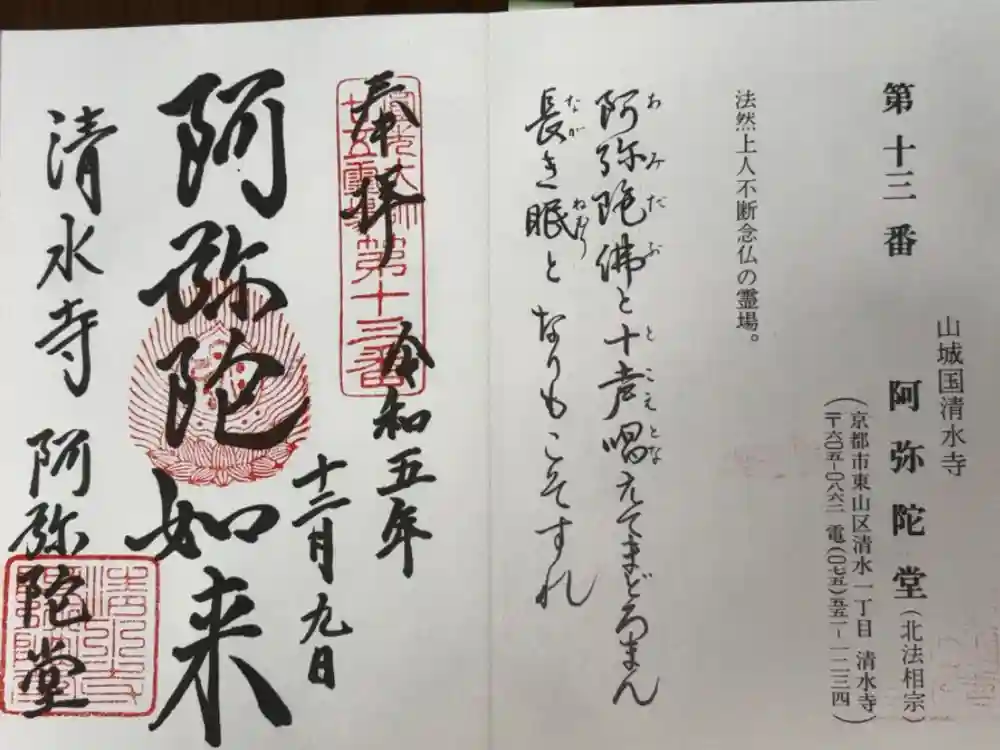 第十三番 阿弥陀堂(北法相宗)
山城国清水寺
(京都市東山区清水一丁目 清水寺)
〒六〇五-〇八六二 電(〇七五)五五一-一二三四
法然上人不断念仏の霊場。
阿弥陀佛と十声唱えてまどろまん
あみだぶ とこえとな
長き眠となりもこそすれ
なが ねむり
奉拝 令和五年
十二月九日
第十三番
阿弥陀如来
清水寺 阿弥陀堂